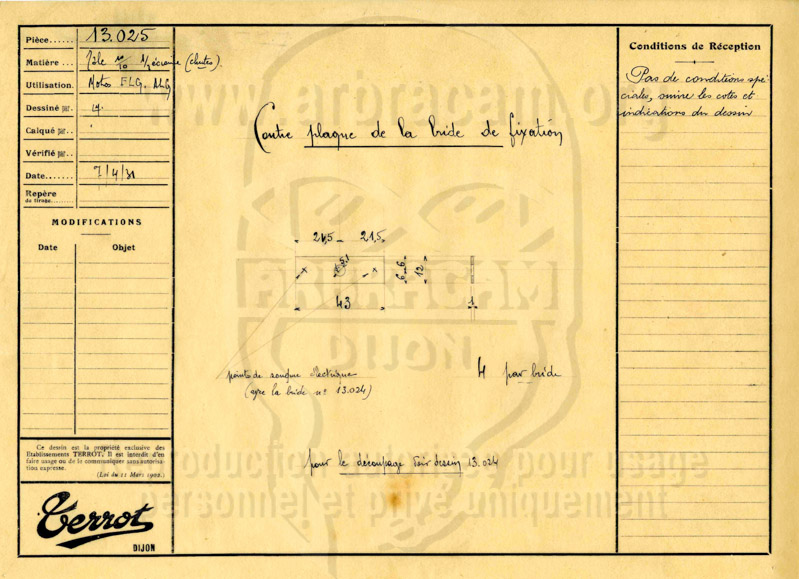 Pièce...... 13.025
Matière... Tôle 10/10 1/2 écrouie (chutes).
Utilisation. Motos FLG. ALG
Dessiné par.
Calqué par..
Vérifié par..
Date....... 7/4/31
Repère
de tirage.......
MODIFICATIONS
Date Objet
Ce dessin est la propriété exclusive des
Etablissements TERROT. Il est interdit d'en
faire usage ou de le communiquer sans autorisa-
tion expresse.
(Loi du 11 Mars 1902.)
Terrot
DIJON
www.arbracam.org
Contre plaque de la bride de fixation
21,5 21,5
5,1
6 6
12
43
1
ARBRACAM
DIJON
points de soudure électrique
(avec la bride n° 13.024)
4 par bride
pour le découpage voir dessin 13.024
pour usage
personnel et privé uniquement
Conditions de Réception
Pas de conditions spé-
ciales, suivre les cotes et
indications du dessin